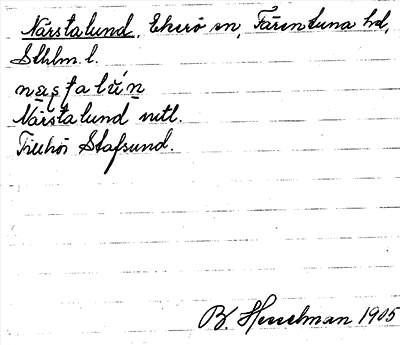 Närstalund, Ekerö sn, Färentuna hd,
Sthlm. l.
næstalún
Närstalund mtl.
Tillhör Stafsund.
B. Hesselman 1905